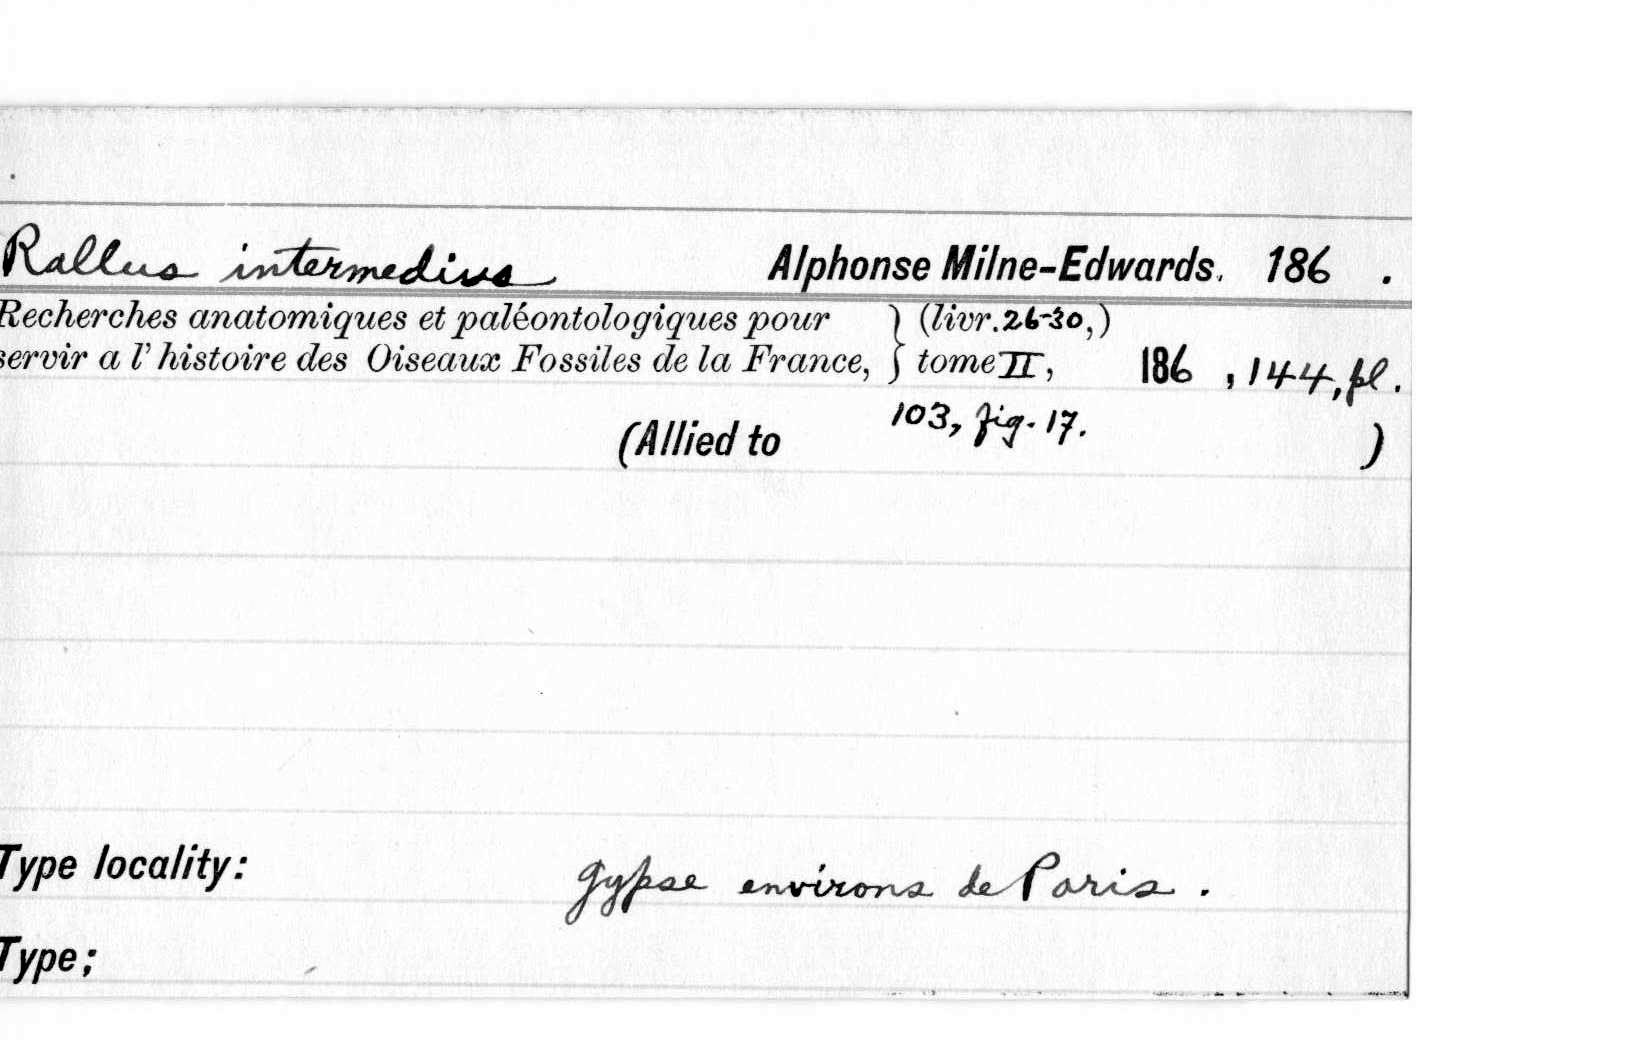 Rallus intermedius Alphonse Milne-Edwards. 186 .
Recherches anatomiques et paléontologiques pour } (livr. 26-30,)
servir a l' histoire des Oiseaux Fossiles de la France, } tome II, 186 , 144, pl.
103, fig. 17.
(Allied to )
Type locality: Gypse environs de Paris .
Type;